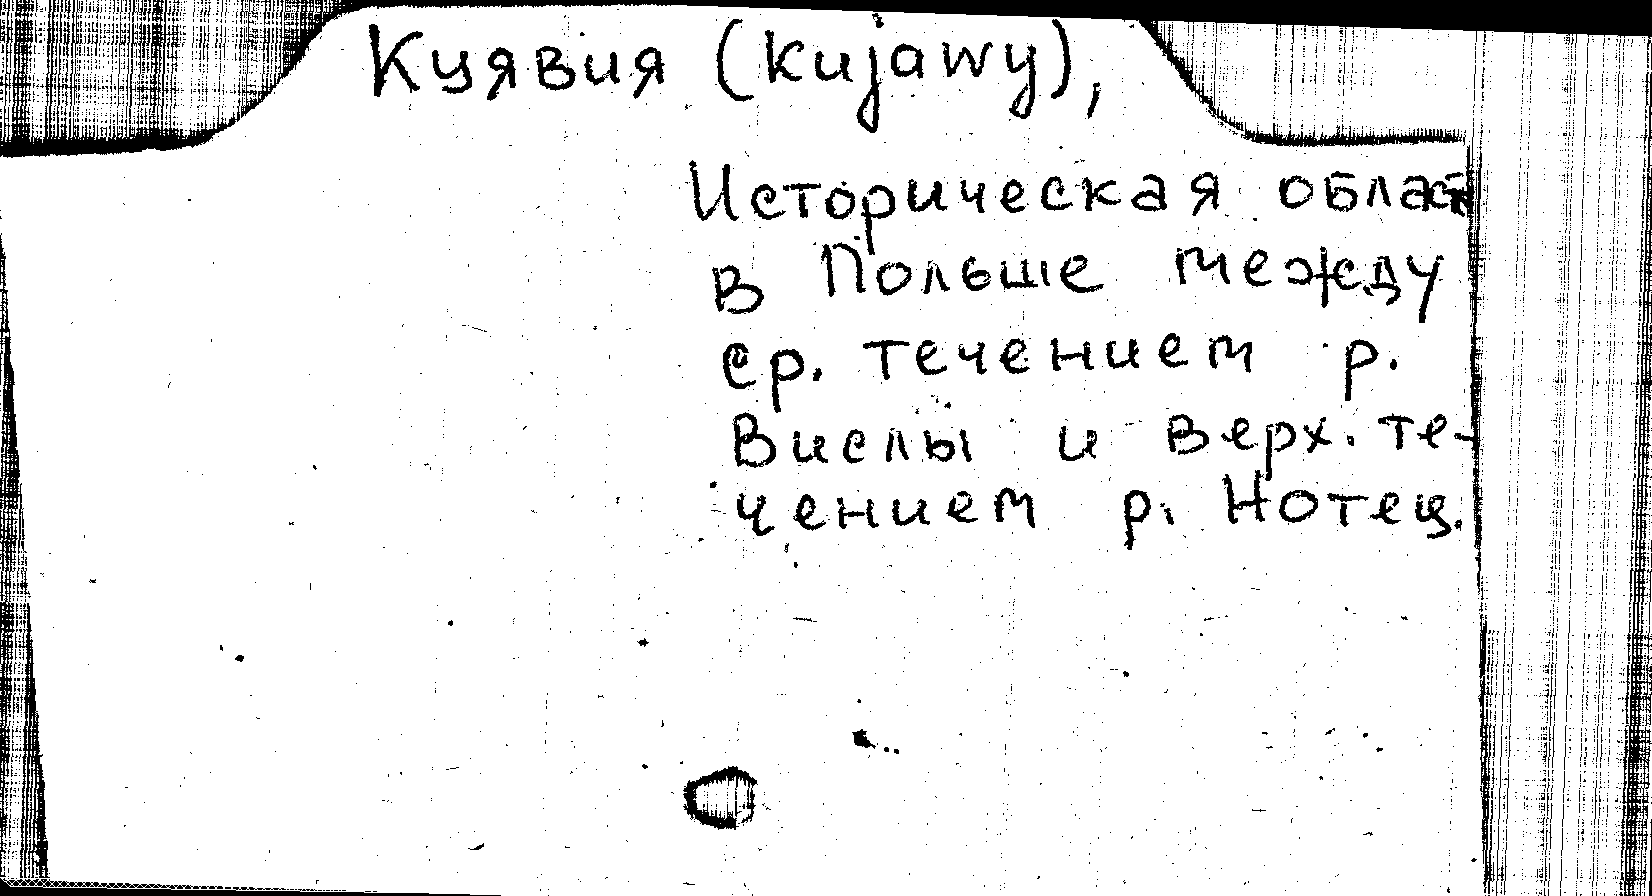 Куявия (Kujawy),
Историческая област
в Польше между
ср. течением р.
Вислы и верх. те-
чением р. Нотец.